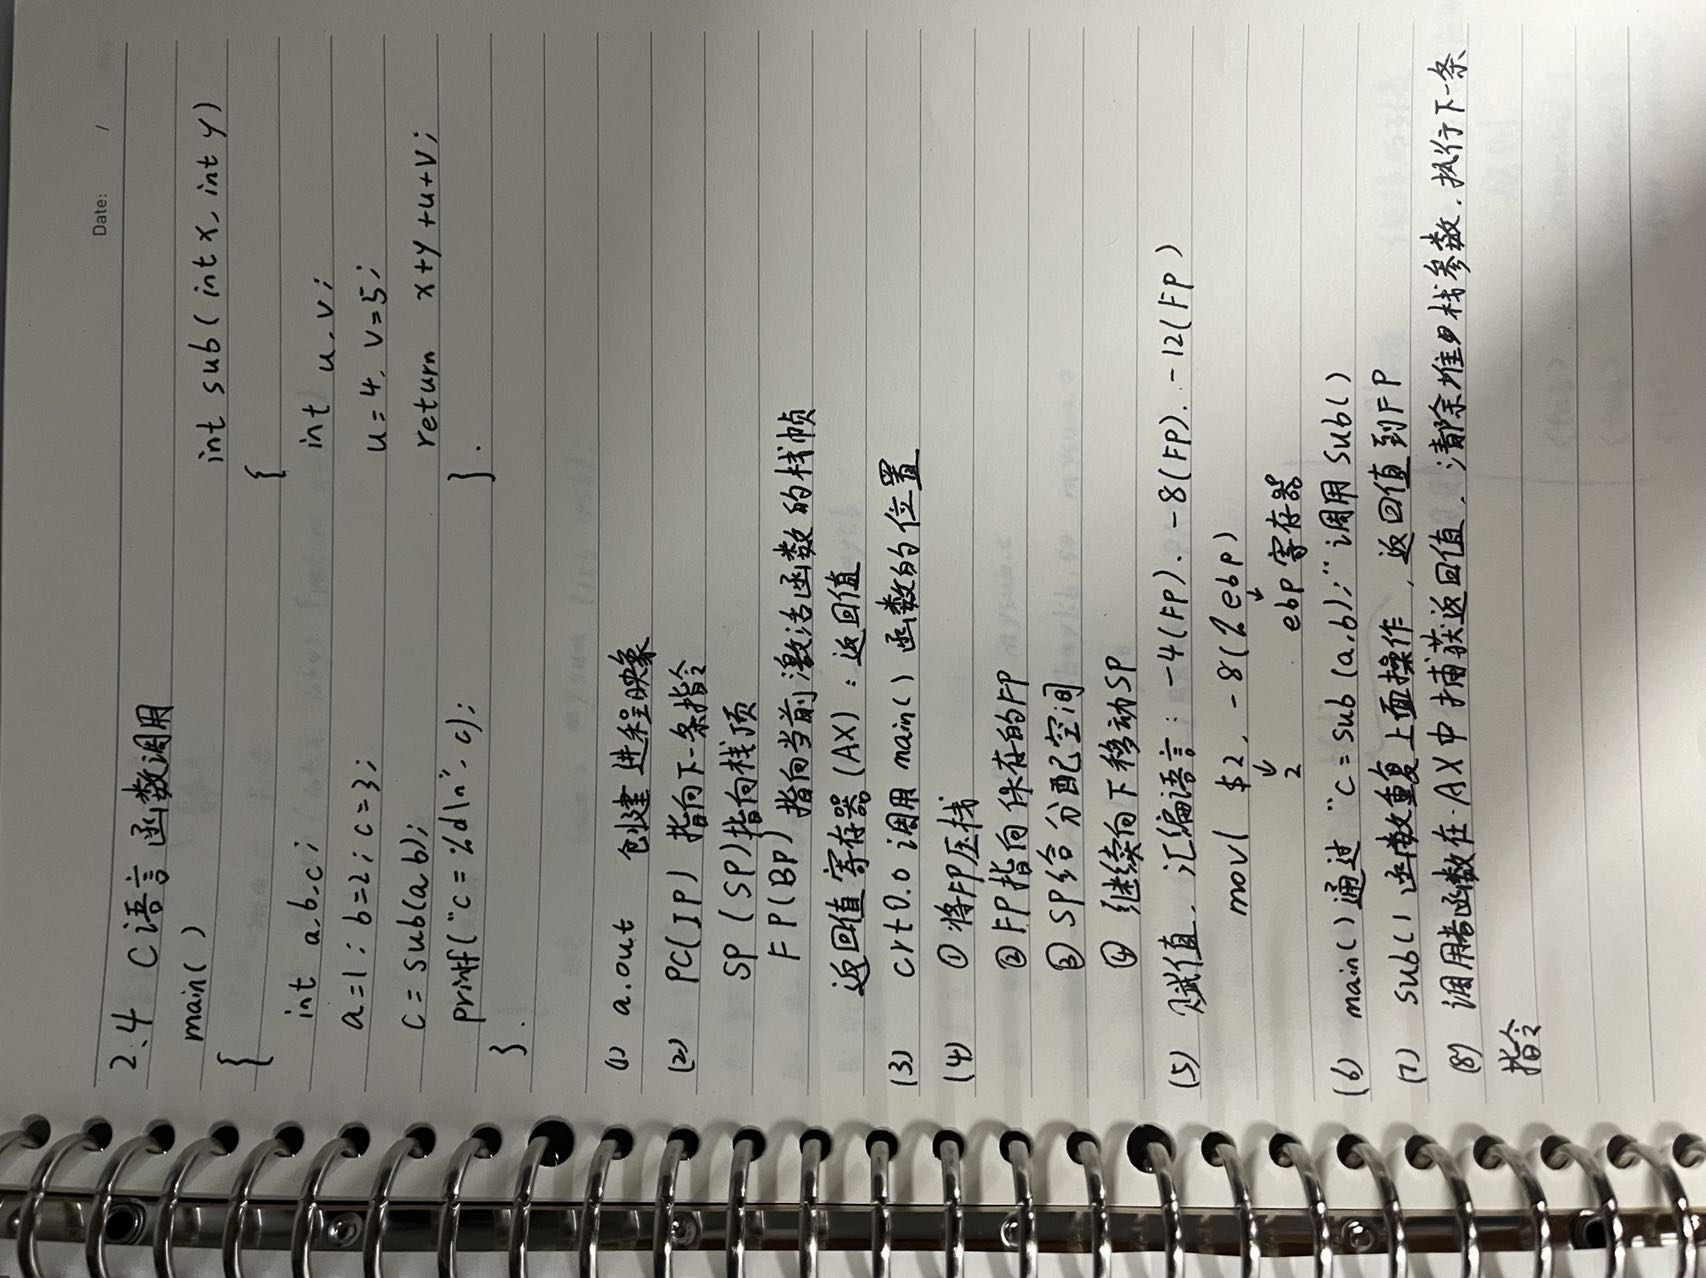 Date: /
2.4 C语言 函数调用
main( )
int sub( int x, int y)
{
{
int a,b,c;
int u,v;
a=1; b=2; c=3;
u=4, v=5;
c = sub(a,b);
return x+y+u+v;
printf("c=%d\n", c);
}.
}.
(1) a.out 创建进程映象
(2) PC(IP) 指向下一条指令
SP(SP)指向栈顶
FP(BP) 指向当前激活函数的栈帧
返回值寄存器(AX):返回值
(3) crt0.o 调用 main() 函数的位置
(4) ① 将FP压栈
② FP指向保存的FP
③ SP给分配空间
④ 继续向下移动SP
(5) 赋值, 汇编语言: -4(FP). -8(FP). -12(FP)
movl $2, -8(%ebp)
↓ ↓
2 ebp寄存器
(6) main()通过"c=sub(a,b);"调用sub()
(7) sub() 函数重复上面操作, 返回值到FP
(8) 调用者函数在AX中捕获返回值, 清除堆栈参数, 执行下一条
指令